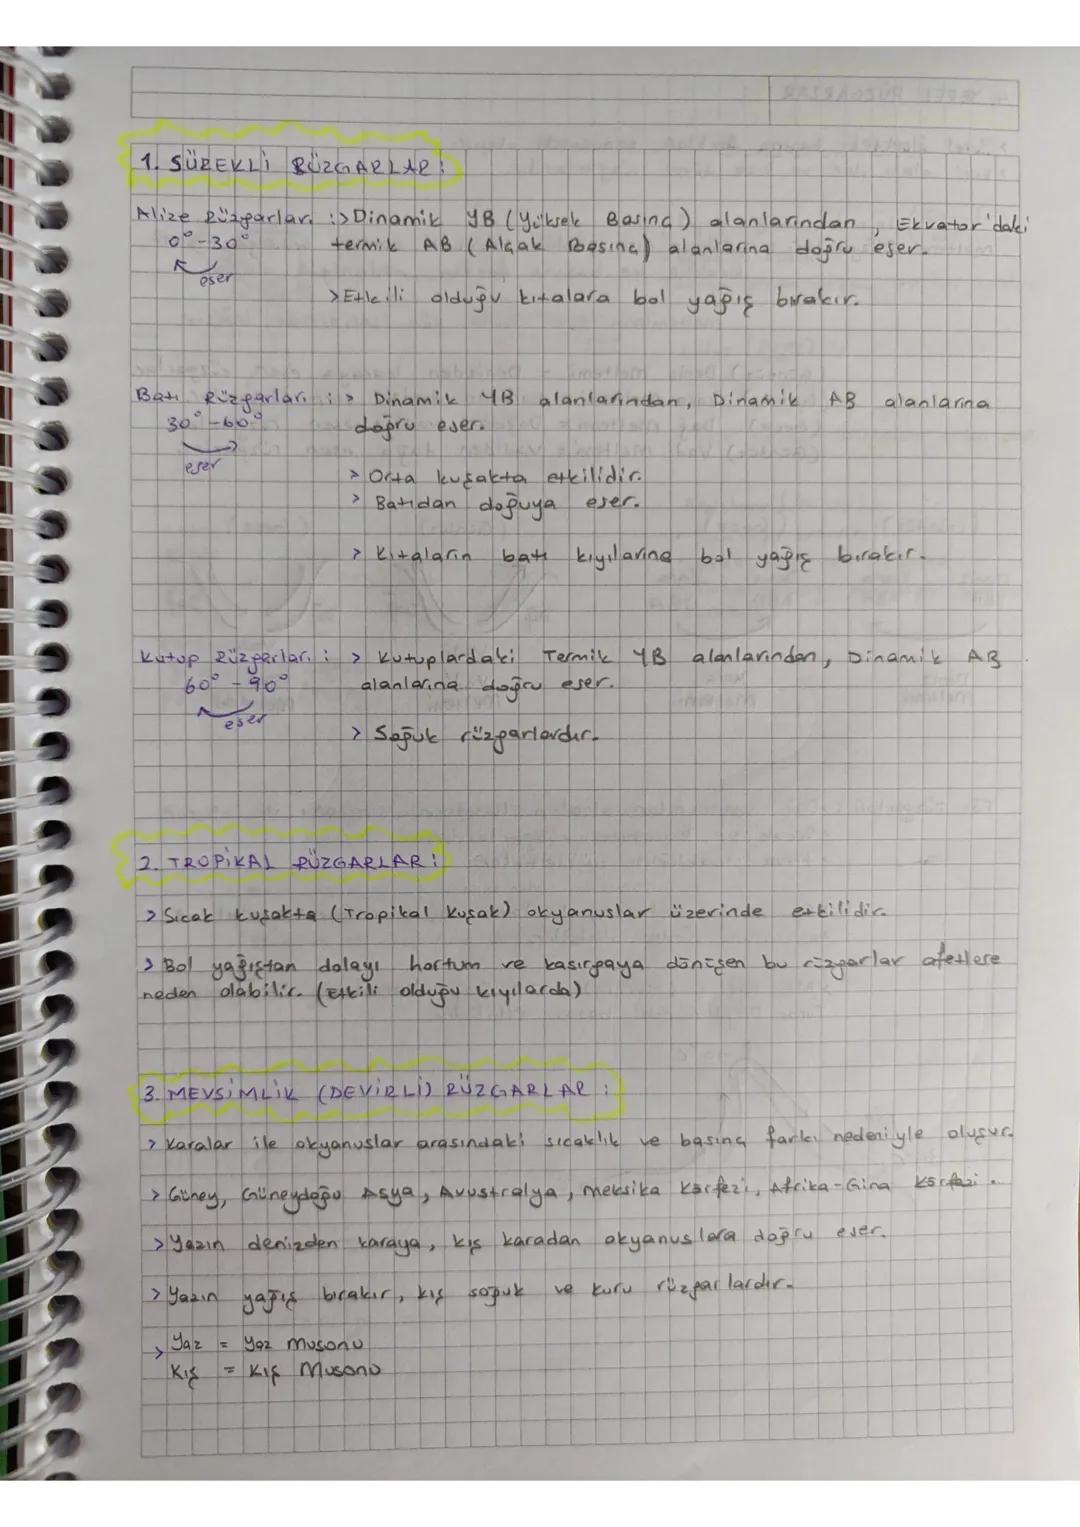 1. SÜREKLİ RÜZGARLAR:
Alize Rüzgarları :> Dinamik YB (Yüksek Basınç) alanlarından, Ekvator'daki
0° - 30° termik AB (Alçak Basınç) alanlarına doğru eser.
eser
> Etkili olduğu kıtalara bol yağış bırakır.
Batı Rüzgarları :> Dinamik YB alanlarından, Dinamik AB alanlarına
30° - 60° doğru eser.
eser
> Orta kuşakta etkilidir.
> Batıdan doğuya eser.
> Kıtaların batı kıyılarına bol yağış bırakır.
Kutup Rüzgarları : > Kutuplardaki Termik YB alanlarından, Dinamik AB
60° - 90° alanlarına doğru eser.
eser
> Soğuk rüzgarlardır.
2. TROPİKAL RÜZGARLAR:
> Sıcak kuşakta (Tropikal Kuşak) okyanuslar üzerinde etkilidir.
> Bol yağıştan dolayı hortum ve kasırgaya dönüşen bu rüzgarlar afetlere
neden olabilir. (Etkili olduğu kıyılarda)
3. MEVSİMLİK (DEVİRLİ) RÜZGARLAR :
> Karalar ile okyanuslar arasındaki sıcaklık ve basınç farkı nedeniyle oluşur.
> Güney, Güneydoğu Asya, Avustralya, Meksika Körfezi, Afrika-Gina Körfezi.
> Yazın denizden karaya, kış karadan okyanuslara doğru eser.
> Yazın yağış bırakır, kış soğuk ve kuru rüzgarlardır.
> Yaz = Yaz Musonu
Kış = Kış Musonu